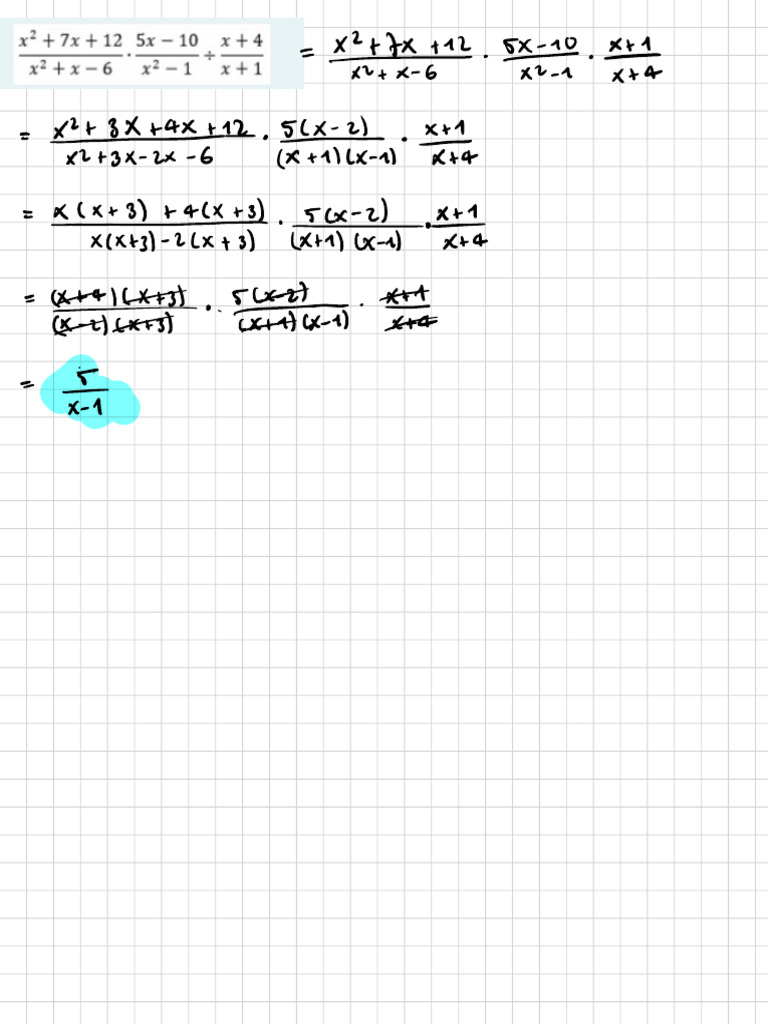 (x² + 7x + 12)/(x² + x − 6) · (5x − 10)/(x² − 1) ÷ (x + 4)/(x + 1) = (x² + 7x + 12)/(x² + x − 6) · (5x − 10)/(x² − 1) · (x + 1)/(x + 4)
= (x² + 3x + 4x + 12)/(x² + 3x − 2x − 6) · (5(x − 2))/((x + 1)(x − 1)) · (x + 1)/(x + 4)
= (x(x + 3) + 4(x + 3))/(x(x + 3) − 2(x + 3)) · (5(x − 2))/((x + 1)(x − 1)) · (x + 1)/(x + 4)
= ((x + 4)(x + 3))/((x − 2)(x + 3)) · (5(x − 2))/((x + 1)(x − 1)) · (x + 1)/(x + 4)
= 5/(x − 1)